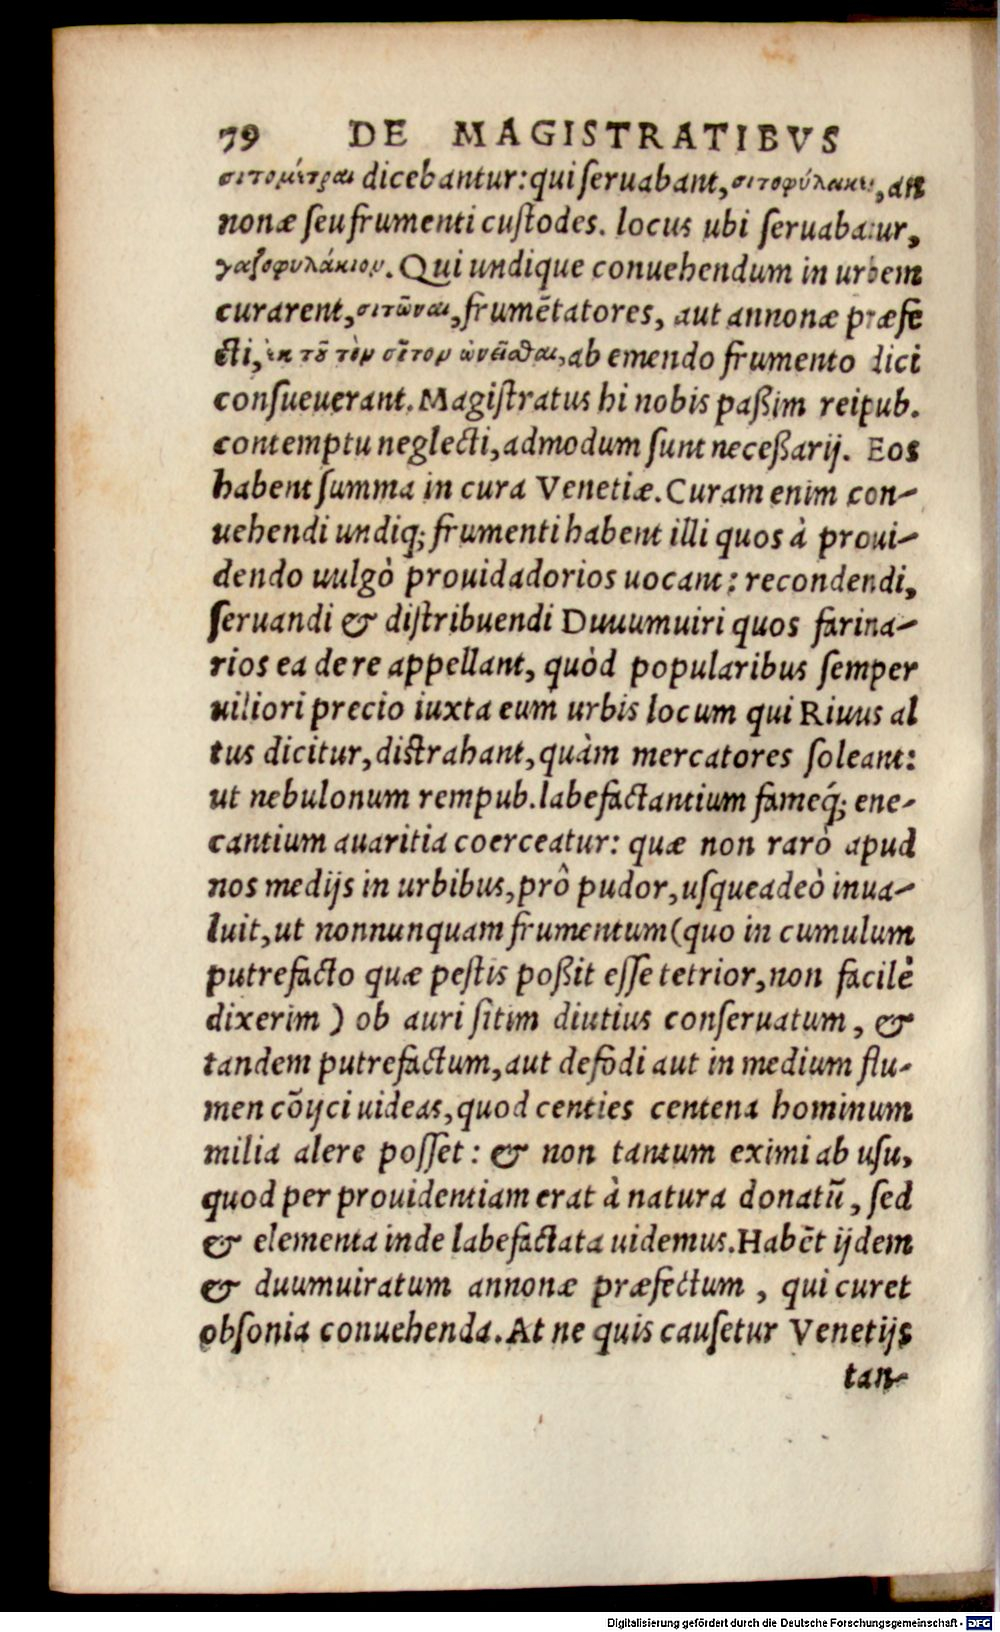 79 DE MAGISTRATIBVS
σιτομέτραι dicebantur: qui ſeruabant, σιτοφύλακες, an
nonæ ſeu frumenti cuſtodes. locus ubi ſeruabatur,
γαζοφυλάκιον. Qui undique conuehendum in urbem
curarent, σιτῶναι, frumētatores, aut annonæ præfe
cti, ἐκ τοῦ τὸν σῖτον ὠνεῖσθαι, ab emendo frumento dici
conſueuerant. Magiſtratus hi nobis paßim reipub.
contemptu neglecti, admodum ſunt neceßarij. Eos
habent ſumma in cura Venetiæ. Curam enim con-
uehendi undiq; frumenti habent illi quos à proui-
dendo uulgò prouidadorios uocant: recondendi,
ſeruandi & diſtribuendi Duuumuiri quos farina-
rios ea de re appellant, quòd popularibus ſemper
uiliori precio iuxta eum urbis locum qui Riuus al
tus dicitur, diſtrahant, quàm mercatores ſoleant:
ut nebulonum rempub. labefactantium fameq́; ene-
cantium auaritia coerceatur: quæ non rarò apud
nos medijs in urbibus, prô pudor, uſqueadeò inua-
luit, ut nonnunquam frumentum (quo in cumulum
putrefacto quæ peſtis poßit eſſe tetrior, non facilè
dixerim) ob auri ſitim diutius conſeruatum, &
tandem putrefactum, aut defodi aut in medium flu-
men cōijci uideas, quod centies centena hominum
milia alere poſſet: & non tantum eximi ab uſu,
quod per prouidentiam erat à natura donatū, ſed
& elementa inde labefactata uidemus. Habēt ijdem
& duumuiratum annonæ præfectum, qui curet
obſonia conuehenda. At ne quis cauſetur Venetijs
tan-
Digitalisierung gefördert durch die Deutsche Forschungsgemeinschaft - DFG